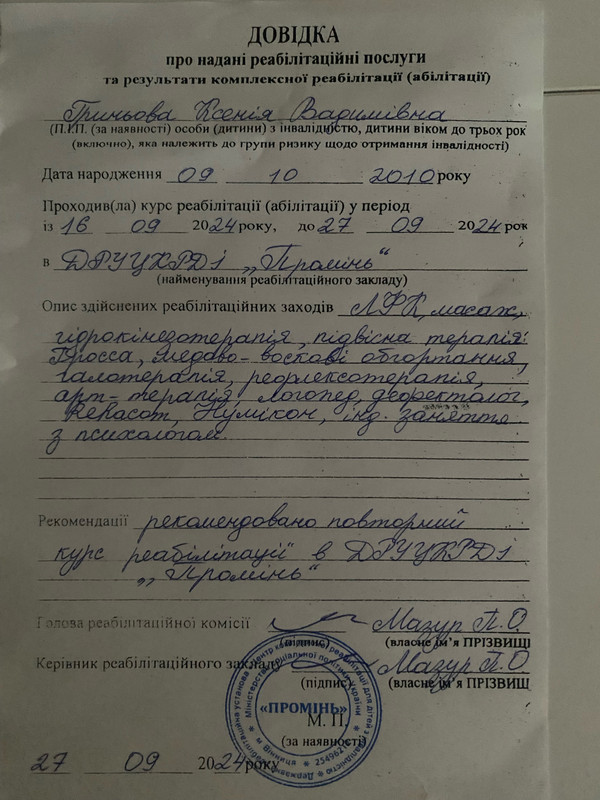 ДОВІДКА
про надані реабілітаційні послуги
та результати комплексної реабілітації (абілітації)
Гриньова Ксенія Вадимівна
(П.І.П. (за наявності) особи (дитини) з інвалідністю, дитини віком до трьох рок
(включно), яка належить до групи ризику щодо отримання інвалідності)
Дата народження 09 10 2010 року
Проходив(ла) курс реабілітації (абілітації) у період
із 16 09 2024 року, до 27 09 2024 рок
в ДРУЦКРДІ „Промінь“
(найменування реабілітаційного закладу)
Опис здійснених реабілітаційних заходів ЛФК, масаж,
гідрокінезотерапія, підвісна терапія:
Гросса, медово-воскові обгортання,
галотерапія, рефлексотерапія,
арт-терапія логопед, дефектолог,
Нумікон, інд. заняття
з психологом.
Рекомендації рекомендовано повторний
курс реабілітації в ДРУЦКРДІ
„Промінь“
Голова реабілітаційної комісії Мазур П.О
(підпис) (власне ім’я ПРІЗВИЩ
Керівник реабілітаційного закладу Мазур П.О
(підпис) (власне ім’я ПРІЗВИЩ
«ПРОМІНЬ»
М. П.
(за наявності)
м Вінниця
27 09 2024 року